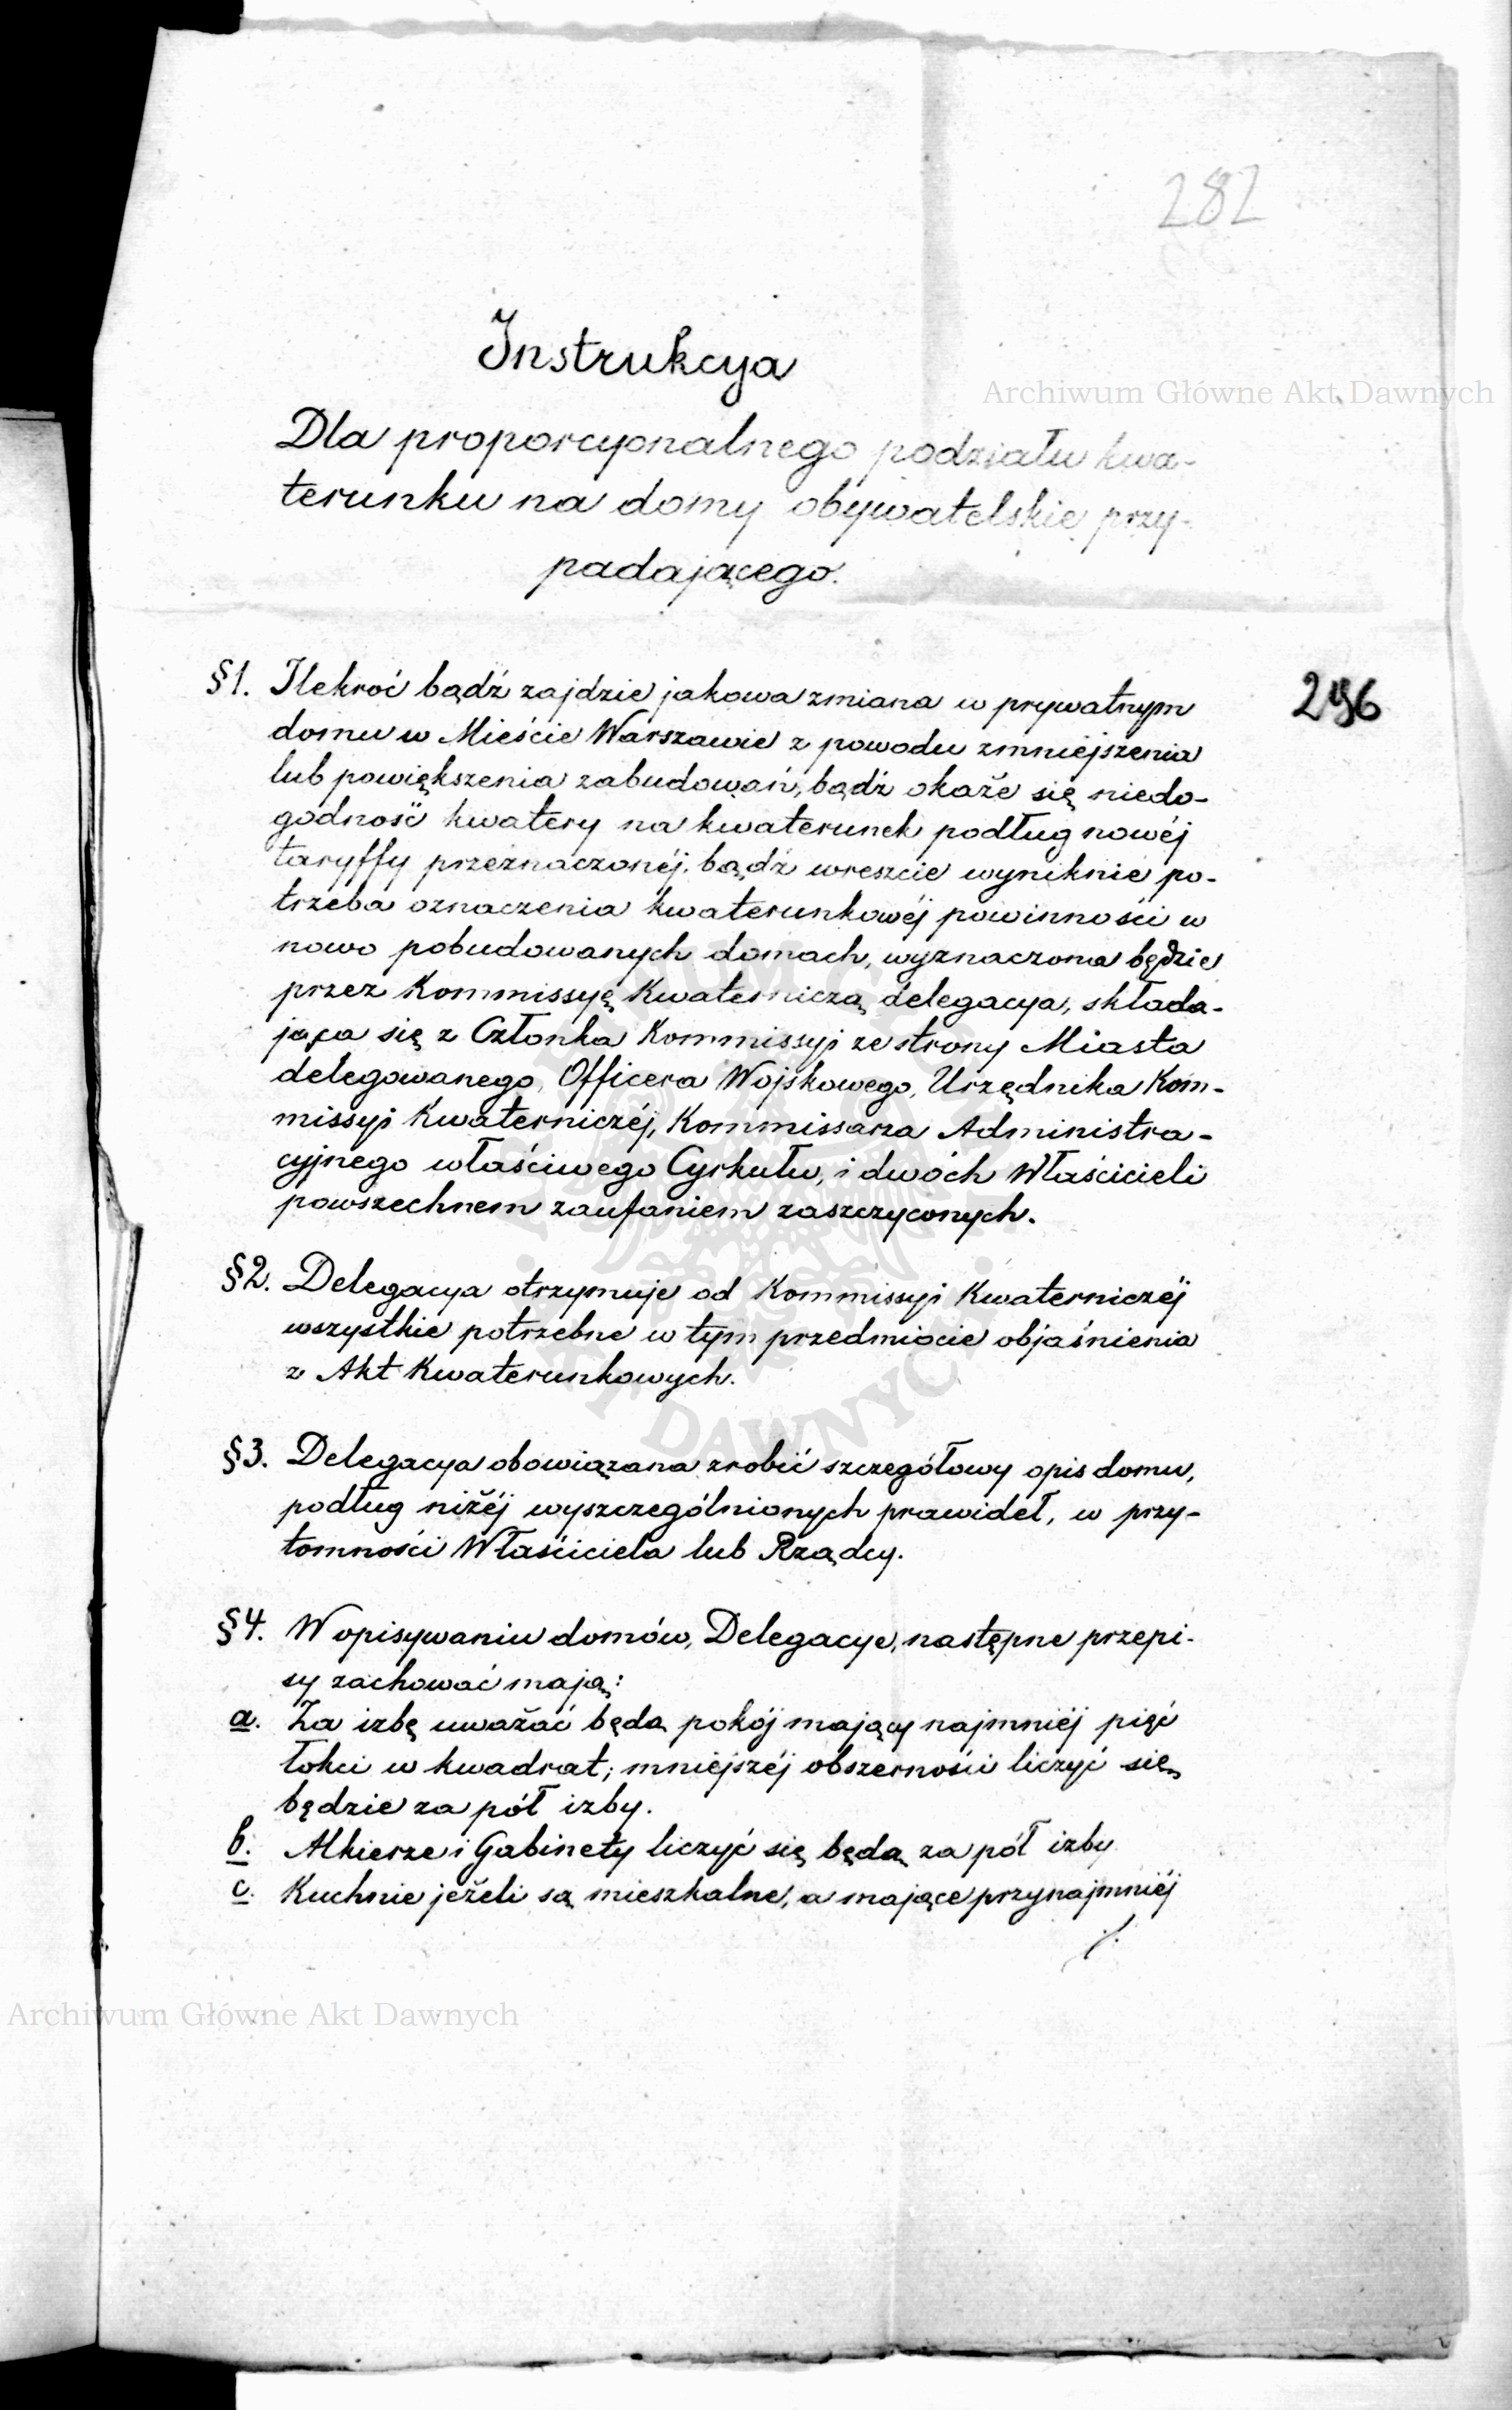 282
Instrukcya
Archiwum Główne Akt Dawnych
Dla proporcyonalnego podziału kwa-
terunku na domy obywatelskie przy-
padającego.
§1. Ilekroć bądź zajdzie jakowa zmiana w prywatnym
296
domu w Mieście Warszawie z powodu zmniejszenia
lub powiększenia zabudowań, bądź okaże się niedo-
godność kwatery na kwaterunek podług nowéj
taryffy przeznaczonéj, bądź wreszcie wyniknie po-
trzeba oznaczenia kwaterunkowéj powinności w
nowo pobudowanych domach, wyznaczona będzie
przez Kommissyę Kwaterniczą delegacya, składa-
jąca się z Członka Kommissyi ze strony Miasta
delegowanego, Officera Wojskowego, Urzędnika Kom-
missyi Kwaterniczéj, Kommissarza Administra-
cyjnego właściwego Cyrkułu, i dwóch Właścicieli
powszechnem zaufaniem zaszczyconych.
§2. Delegacya otrzymuje od Kommissyi Kwaterniczéj
wszystkie potrzebne w tym przedmiocie objaśnienia
z Akt Kwaterunkowych.
DAWNYCH
§3. Delegacya obowiązana zrobić szczegółowy opis domu,
podług niżéj wyszczególnionych prawideł, w przy-
tomności Właściciela lub Rządcy.
§4. W opisywaniu domów, Delegacye, następne przepi-
sy zachować mają:
a. Za izbę uważać będą pokój mający najmniéj pięć
łokci w kwadrat; mniejszéj obszerności liczyć się
będzie za pół izby.
b. Alkierze i Gabinety liczyć się będą za pół izby
c. Kuchnie jeżeli są mieszkalne, a mające przynajmniéj
./.
Archiwum Główne Akt Dawnych